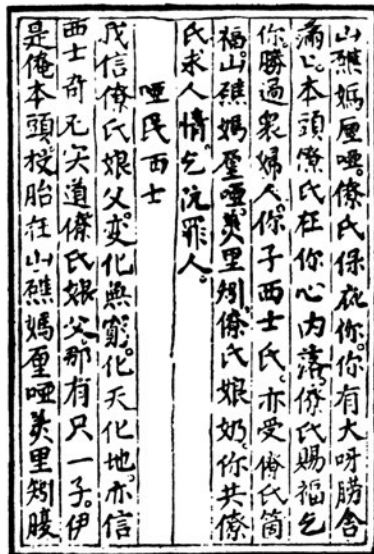 山礁媽厘啞。僚氏保庇你。你有大呀朥舍
滿〻。本頭僚氏在你心內落。僚氏賜福乞
你。勝過眾婦人。你子西士氏。亦受僚氏箇
福。山礁媽厘啞。美里矧。僚氏娘奶。你共僚
氏求人情。乞阮罪人。
啞民西士
我信僚氏娘父。变化無窮。化天化地。亦信
西士奇尼矢道僚氏娘父。那有只一子。伊
是俺本頭。投胎在山礁媽厘啞美里矧腹